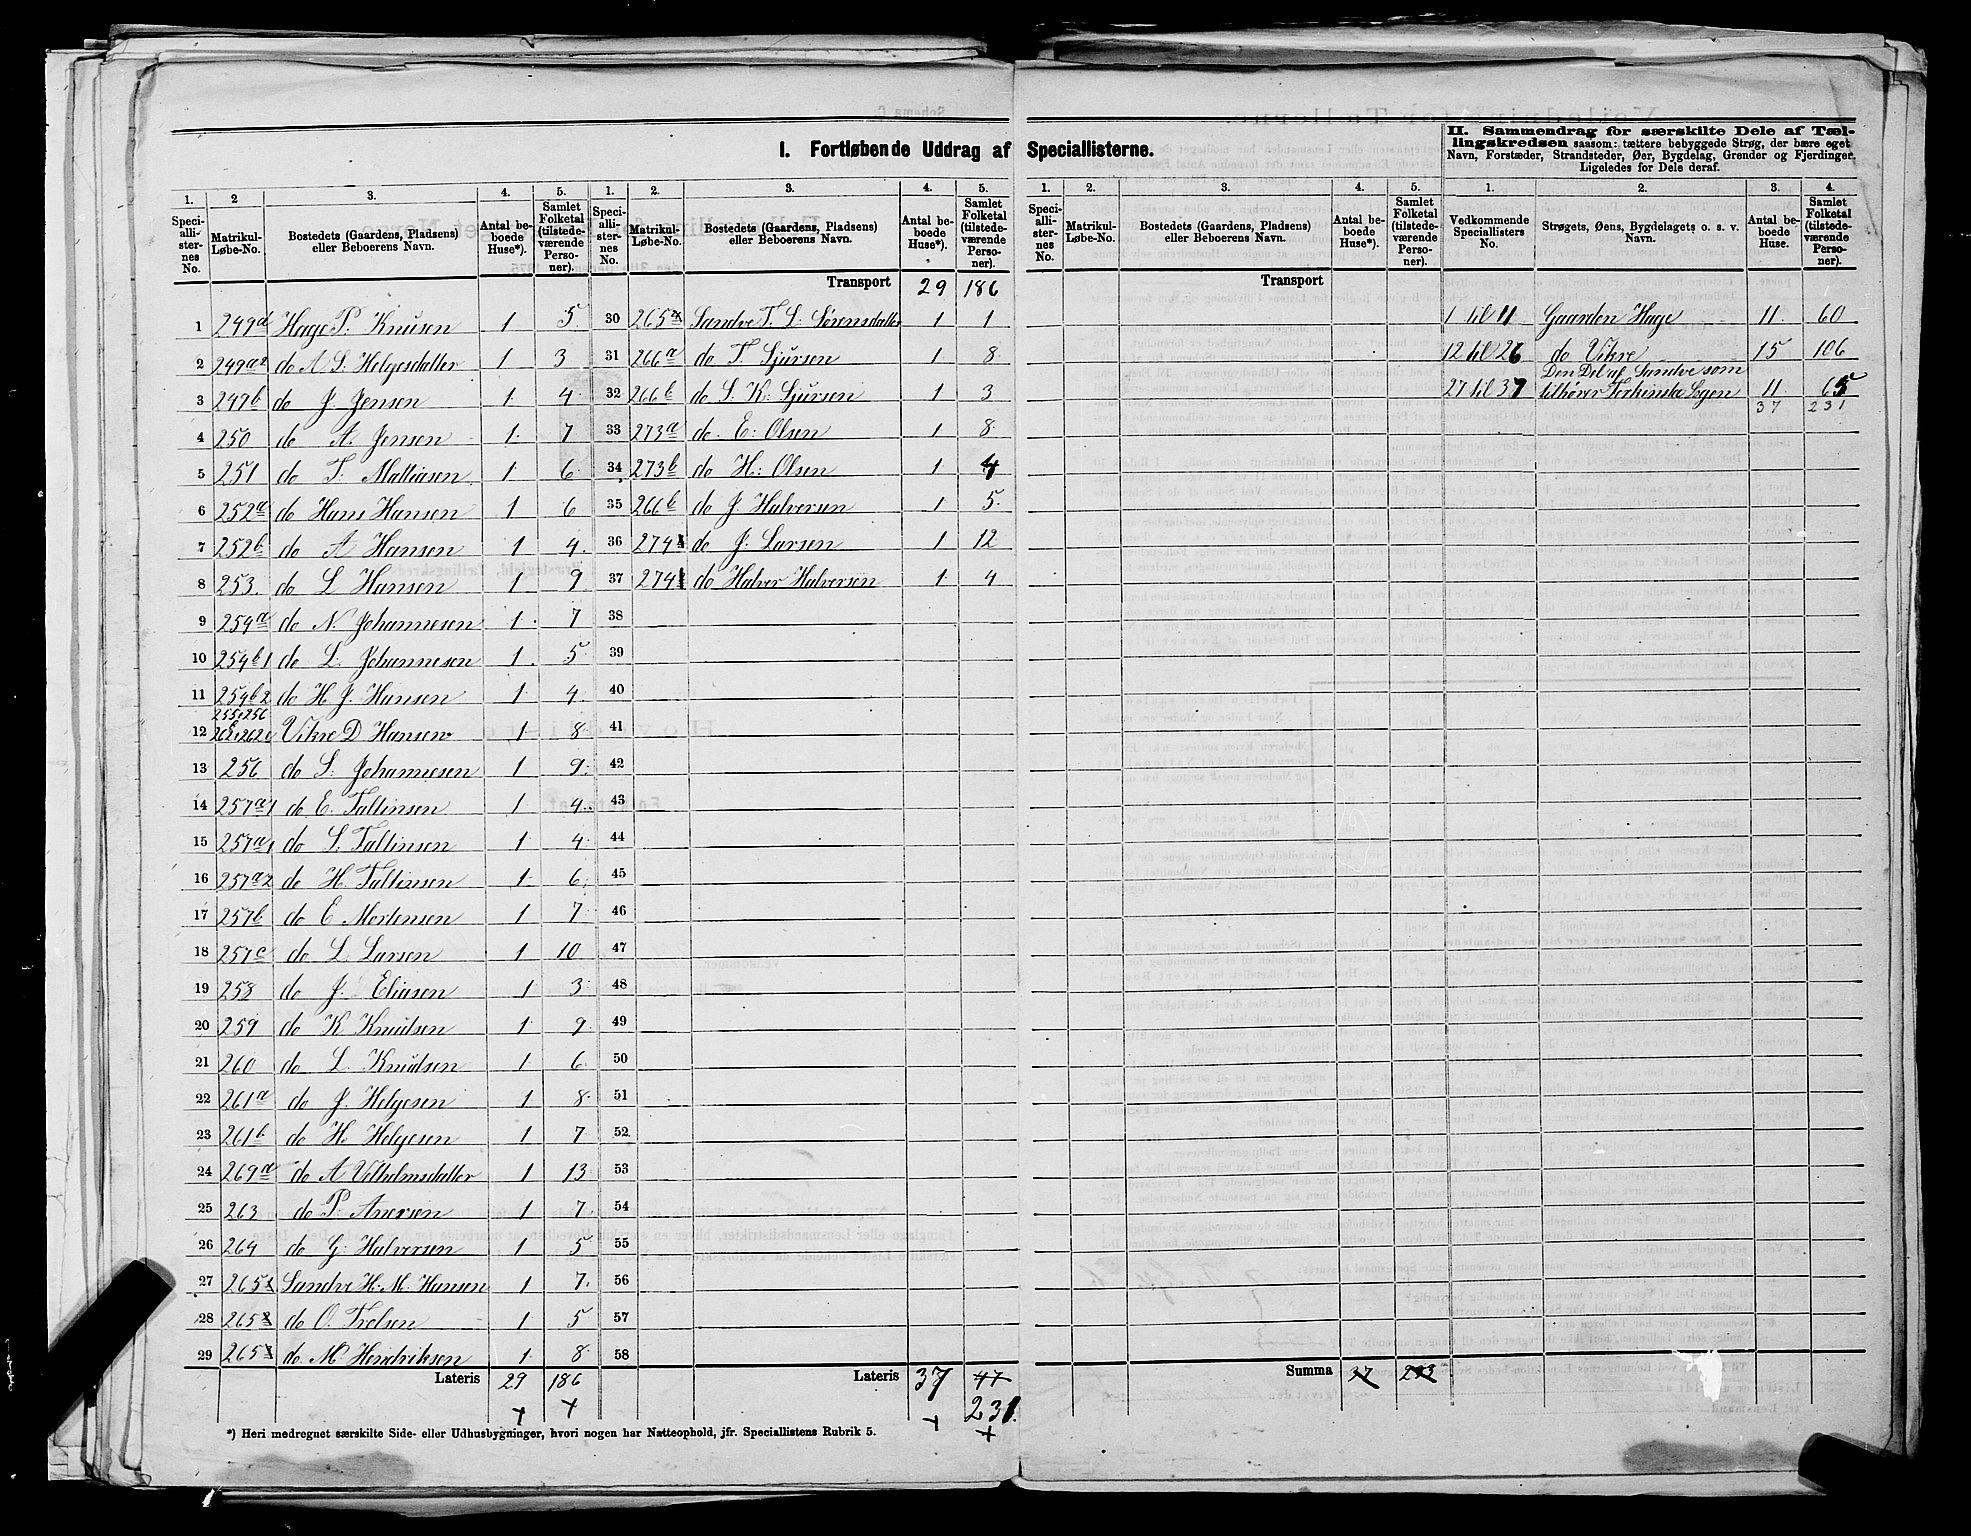 I. Fortløbende Uddrag af Speciallisterne.
II. Sammendrag for særskilte Dele af Tællingskredsen saasom: tættere bebyggede Strøg, der bære eget Navn, Forstæder, Strandsteder, Øer, Bygdelag, Grender og Fjerdinger. Ligeledes for Dele deraf.
1. 2 3. 4. 5.
Speciallisternes No. Matrikul-Løbe-No. Bostedets (Gaardens, Pladsens) eller Beboerens Navn. Antal beboede Huse*). Samlet Folketal (tilstedeværende Personer).
1 249d Hage P. Knusen 1 5
2 249a2 do A S: Helgesdatter 1 3
3 249b do J Jensen 1 4
4 250 do A. Jensen 1 7
5 251 do T. Mattiasen 1 6
6 252a do Hans Hansen 1 6
7 252b do A Hansen 1 4
8 253. do L Hansen 1 9
9 254a do N. Johannesen 1 7
10 254b1 do L: Johannesen 1 5
11 254b2 do H J. Hansen 1 4
255, 256
12 Vikre D Hansen 1 8
13 256 do S: Johannesen 1 9
14 257a1 do E. Taltinsen 1 4
15 257a1 do S. Taltinsen 1 4
16 257a2 do H. Taltinsen 1 6
17 257b do E Mortensen 1 7
18 257c do L Larsen 1 10
19 258 do J. Eliasen 1 3
20 259 do K Knudsen 1 9
21 260 do L. Knudsen 1 6
22 261a do J. Helgesen 1 8
23 261b do H. Helgesen 1 7
24 269a do A Vilhelmsdatter 1 13
25 263 do P. Andersen 1 7
26 264 do G: Halversen 1 5
27 265 Sandve H: M: Hansen 1 7
28 265 do O. Trelsen 1 5
29 265 do M Hendriksen 1 8
Lateris 29 186
1. 2. 3. 4. 5.
Speciallisternes No. Matrikul-Løbe-No. Bostedets (Gaardens, Pladsens) eller Beboerens Navn. Antal beboede Huse*) Samlet Folketal (tilstedeværende Personer).
Transport 29 186
30 265 Sandve T. L: Sørensdatter 1 1
31 266a do T Sjursen 1 8
32 266b do S. K: Sjursen 1 3
33 273a do. E: Olsen 1 8
34 273b do H: Olsen 1 4
35 266b do J Halversen 1 5
36 274 do J: Larsen 1 12
37 274 do Halver Halversen 1 4
38
39
40
41
42
43
44
45
46
47
48
49
50
51
52
53
54
55
56
57
58
Lateris 37 47
231.
*) Heri medregnet særskilte Side- eller Udhusbygninger, hvori nogen har Natteophold, jfr. Speciallistens Rubrik 5.
1. 2. 3. 4. 5.
Speciallisternes No. Matrikul-Løbe-No. Bostedets (Gaardens, Pladsens) eller Beboerens Navn. Antal beboede Huse*). Samlet Folketal (tilstedeværende Personer).
Transport
Summa 37 233
1. 2. 3. 4.
Vedkommende Speciallisters No. Strøgets, Øens, Bygdelagets o. s. v. Navn. Antal beboede Huse. Samlet Folketal (tilstedeværende Personer).
1 til 11 Gaarden Hage 11 60
12 til 26 do Vikre 15 106
Den Del af Sandve som
27 til 37 tilhører Ferkinsta Sogn 11 65
37 231